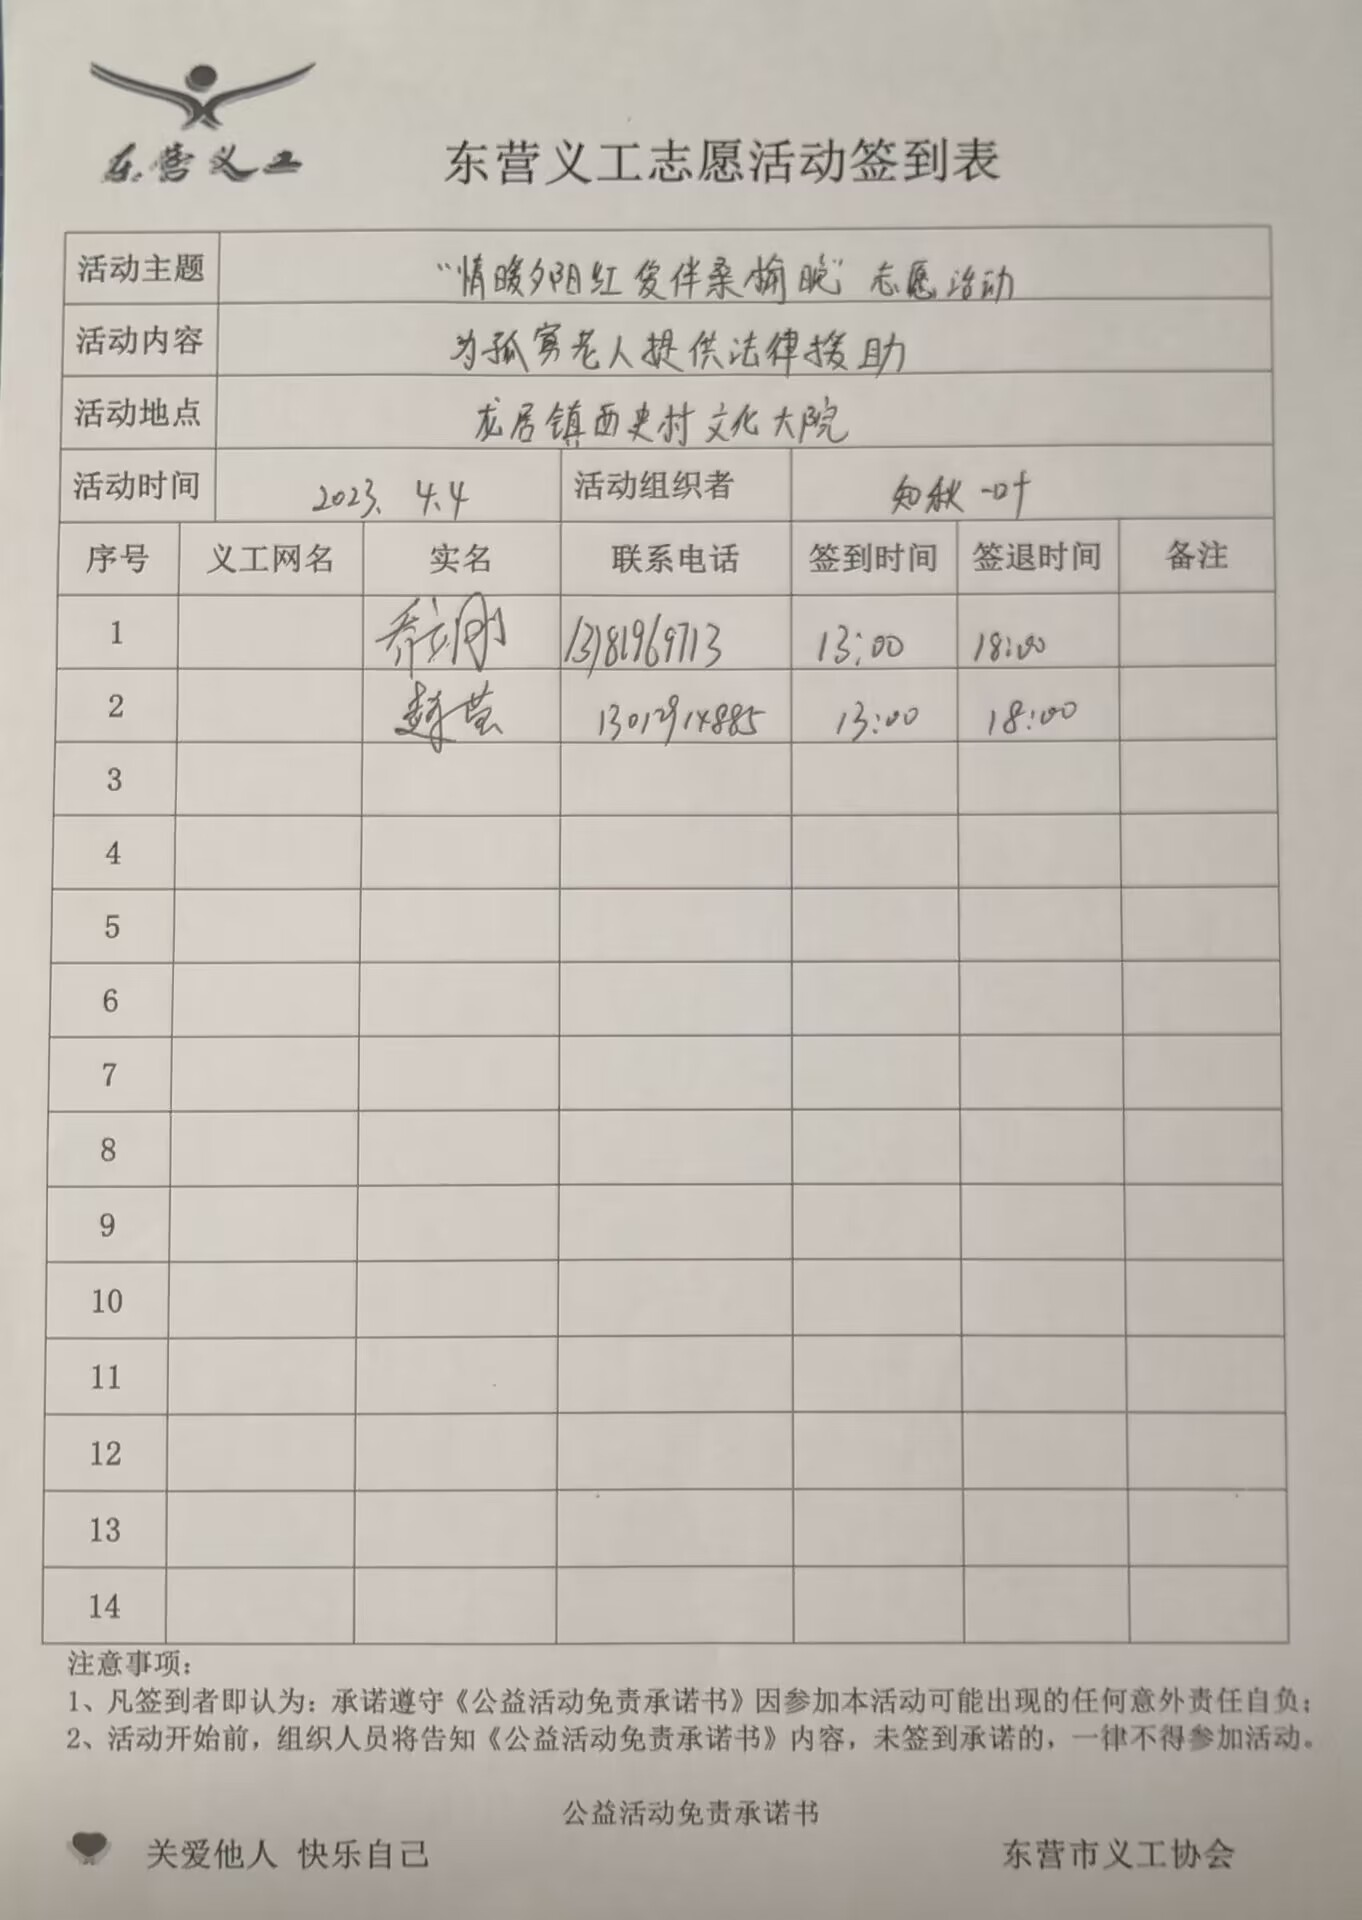 东营义工
东营义工志愿活动签到表
活动主题 “情暖夕阳红 爱伴桑榆晚”志愿活动
活动内容 为孤寡老人提供法律援助
活动地点 龙居镇西史村文化大院
活动时间 2023.4.4 活动组织者 知秋一叶
序号 义工网名 实名 联系电话 签到时间 签退时间 备注
1 乔立刚 13181969713 13:00 18:00
2 赵莹 13012914885 13:00 18:00
3
4
5
6
7
8
9
10
11
12
13
14
注意事项:
1、凡签到者即认为:承诺遵守《公益活动免责承诺书》因参加本活动可能出现的任何意外责任自负;
2、活动开始前,组织人员将告知《公益活动免责承诺书》内容,未签到承诺的,一律不得参加活动。
公益活动免责承诺书
关爱他人 快乐自己 东营市义工协会